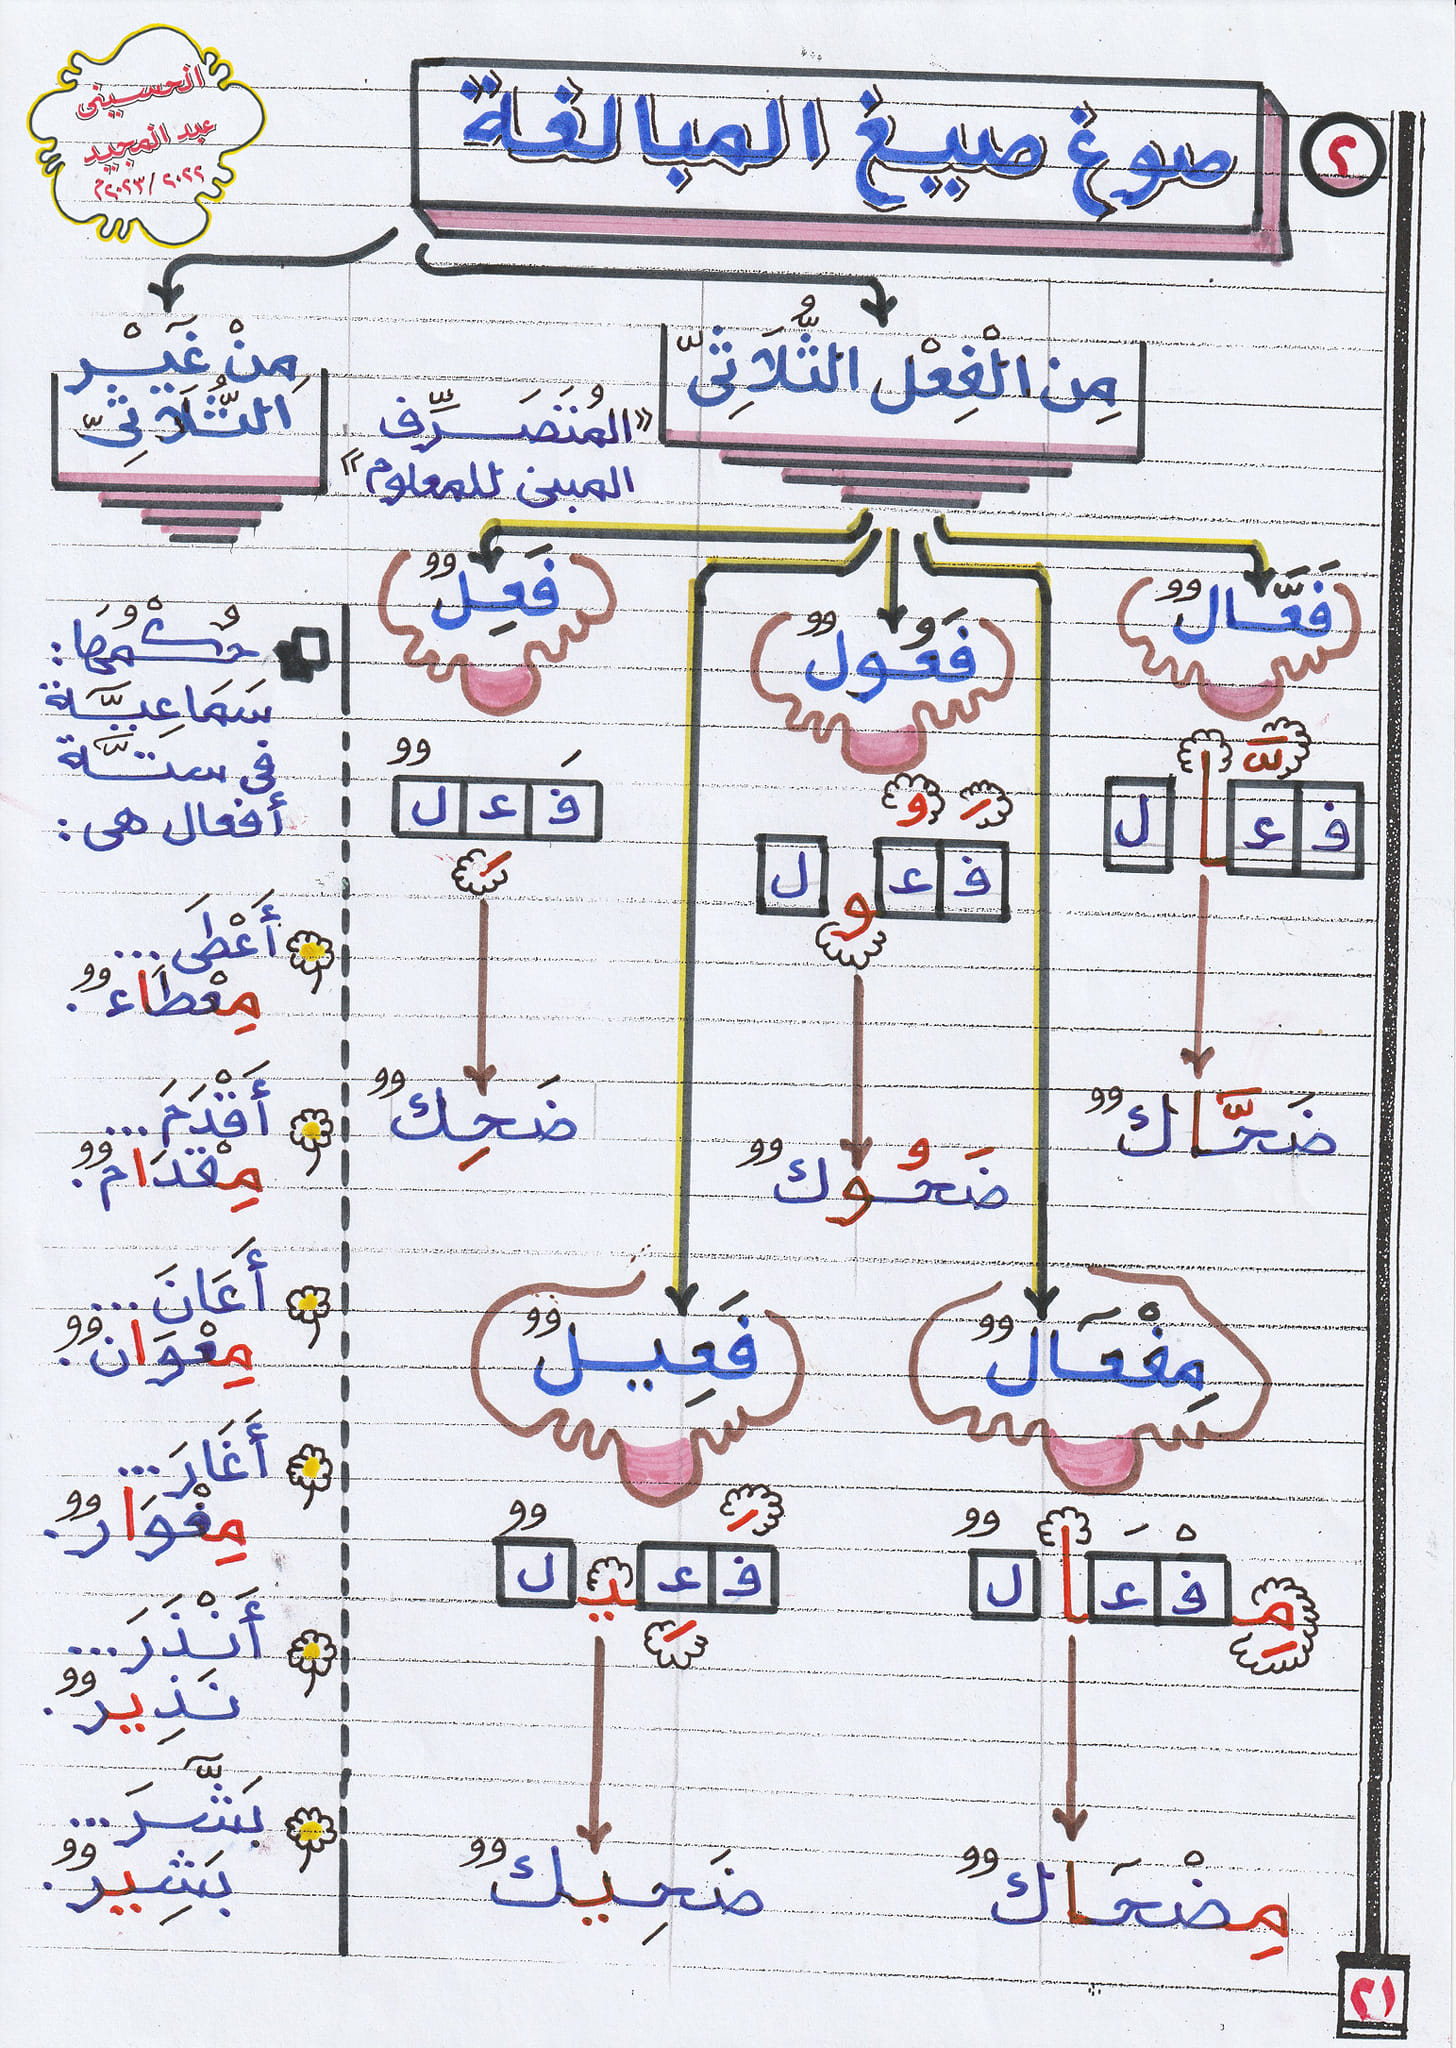 الحسينى
عبد المجيد
٢٠٢٢/٢٠٢٣م
٢
صوغ صيغ المبالغة
مِن الْفِعْل الثُّلَاثِىّ
«المُتَصَرِّف
المبنى للمعلوم»
مِنْ غَيْر
الثُّلَاثِىّ
فَعَّالٌ
فَعُولٌ
فَعِلٌ
ف ع ا ل
ف ع و ل
ف ع ل
ضَحَّاكٌ
ضَحُوكٌ
ضَحِكٌ
مِفْعَالٌ
فَعِيلٌ
مِ ف ع ا ل
ف ع ي ل
مِضْحَاكٌ
ضَحِيكٌ
حُكْمُهَا:
سَمَاعِيَّة
فى ستَّة
أفعال هى:
أَعْطَى...
مِعْطَاءٌ.
أَقْدَمَ...
مِقْدَامٌ.
أَعَانَ...
مِعْوَانٌ.
أَغَارَ...
مِغْوَارٌ.
أَنْذَرَ...
نَذِيرٌ.
بَشَّرَ...
بَشِيرٌ.
٢١